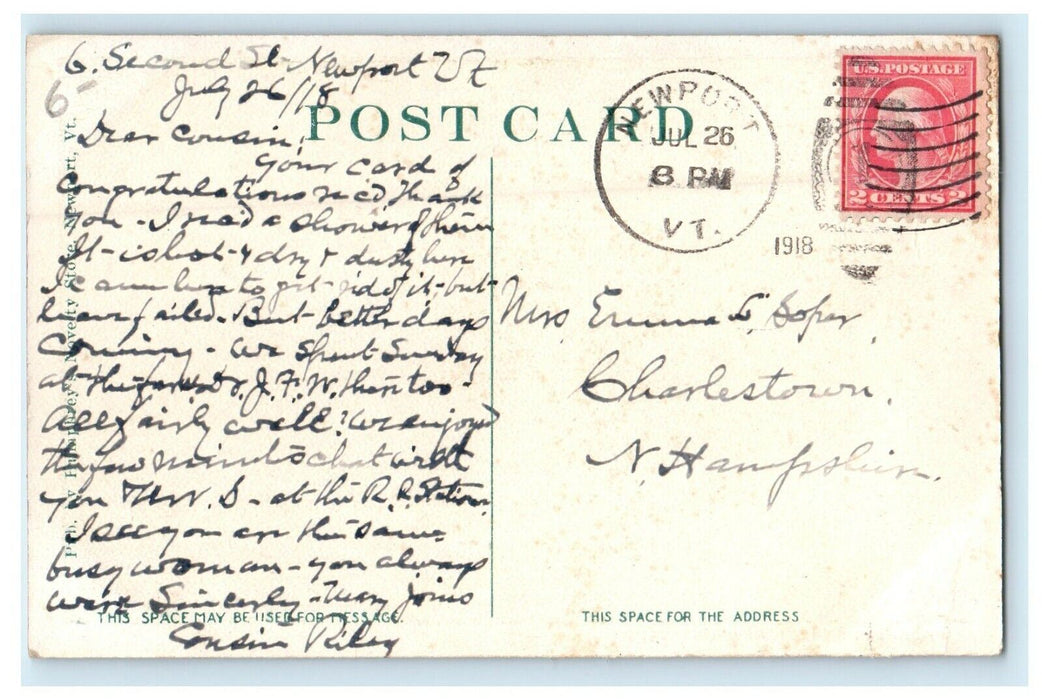 6. Second St Newport Vt
6-
July 26/18
POST CARD
Dear Cousin,
Your card of
Congratulations recd Thank
you - I recd a shower of them
It is hot & dry & dusty here
I came here to get rid of it but
have failed. But better days
Coming - we spent Sunday
at the J. F. W.
All fairly well. We enjoyed
the few minutes chat with
you & at the R. R. Station
I see you are the same
busy woman - you always
were Sincerely - Mary joins
Cousin Riley
THIS SPACE MAY BE USED FOR MESSAGE.
Pub. Humphrey's Novelty Store, Newport, Vt.
NEWPORT
JUL 26
8 PM
VT.
1918
U.S. POSTAGE
2 CENTS 2
Mrs Emma L. Soper,
Charlestown,
N. Hampshire.
THIS SPACE FOR THE ADDRESS